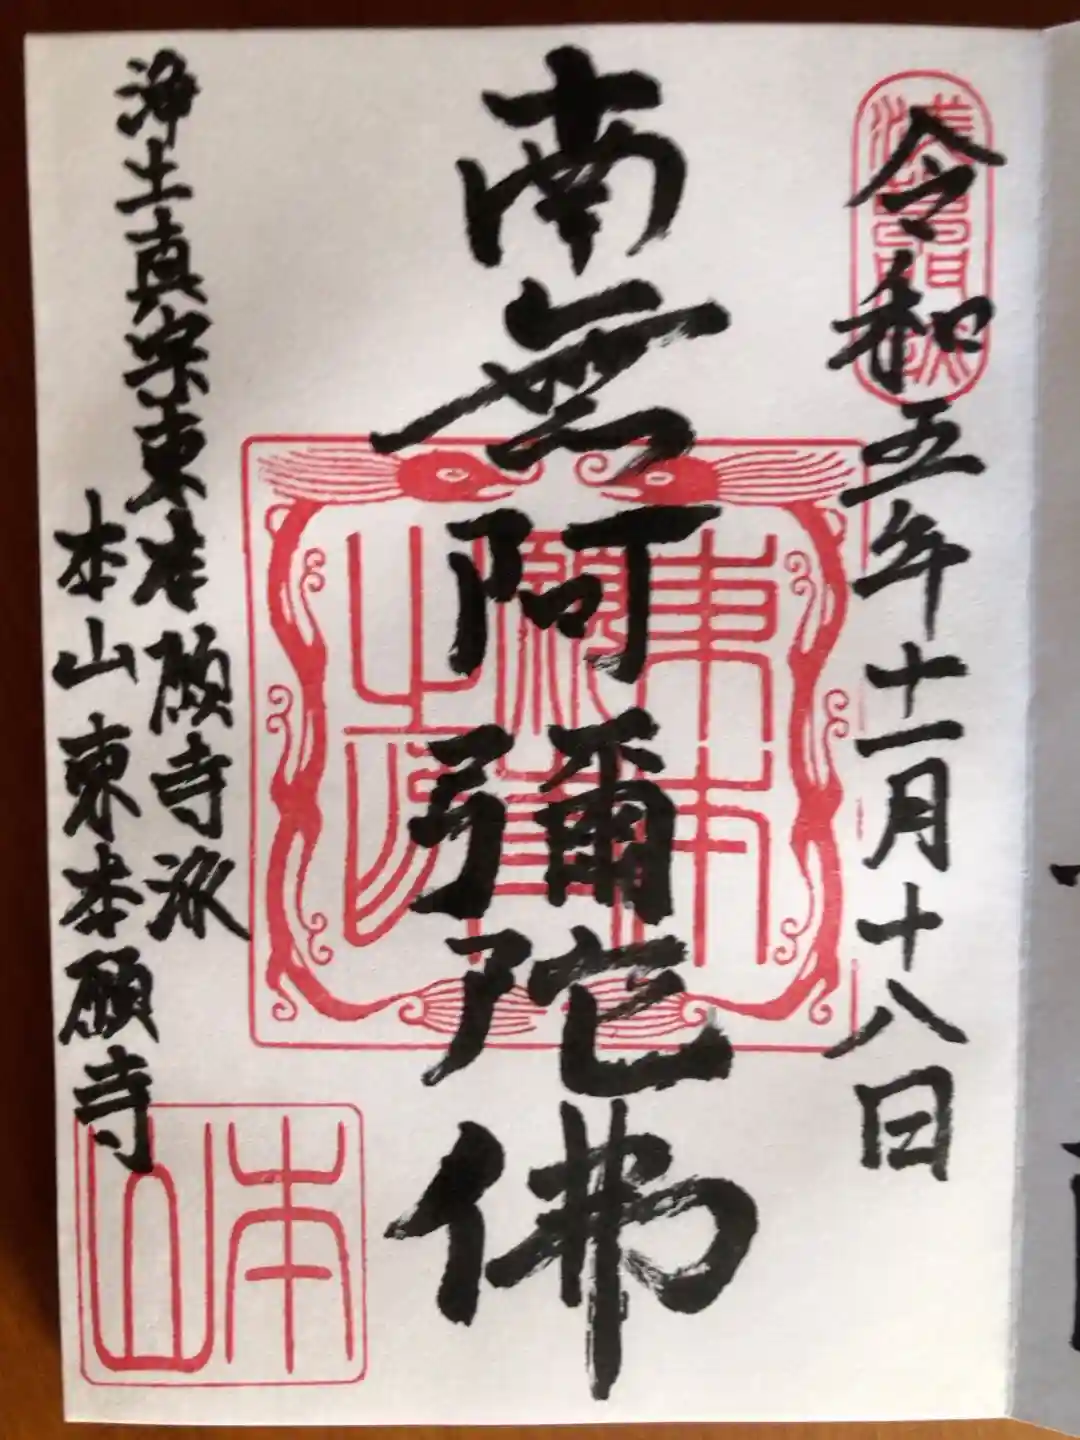 令和五年十一月十八日
南無阿彌陀佛
浄土真宗東本願寺派
本山東本願寺
東本願寺之印
本山